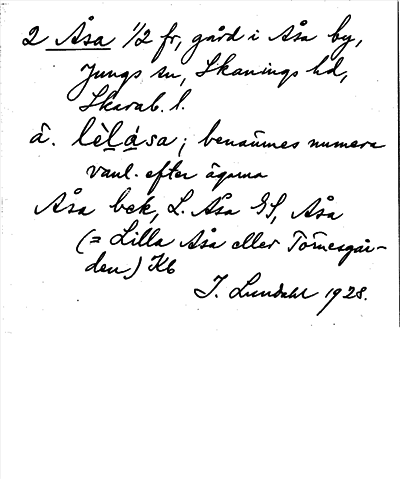 2 Åsa 1/2 fr, gård i Åsa by,
Jungs sn, Skånings hd,
Skarab. l.
å. lèlása; benämnes numera
vanl. efter ägarna
Åsa bck, L. Åsa GS, Åsa
(= Lilla Åsa eller Tornesgår-
den) Kb
I. Lundahl 1928.